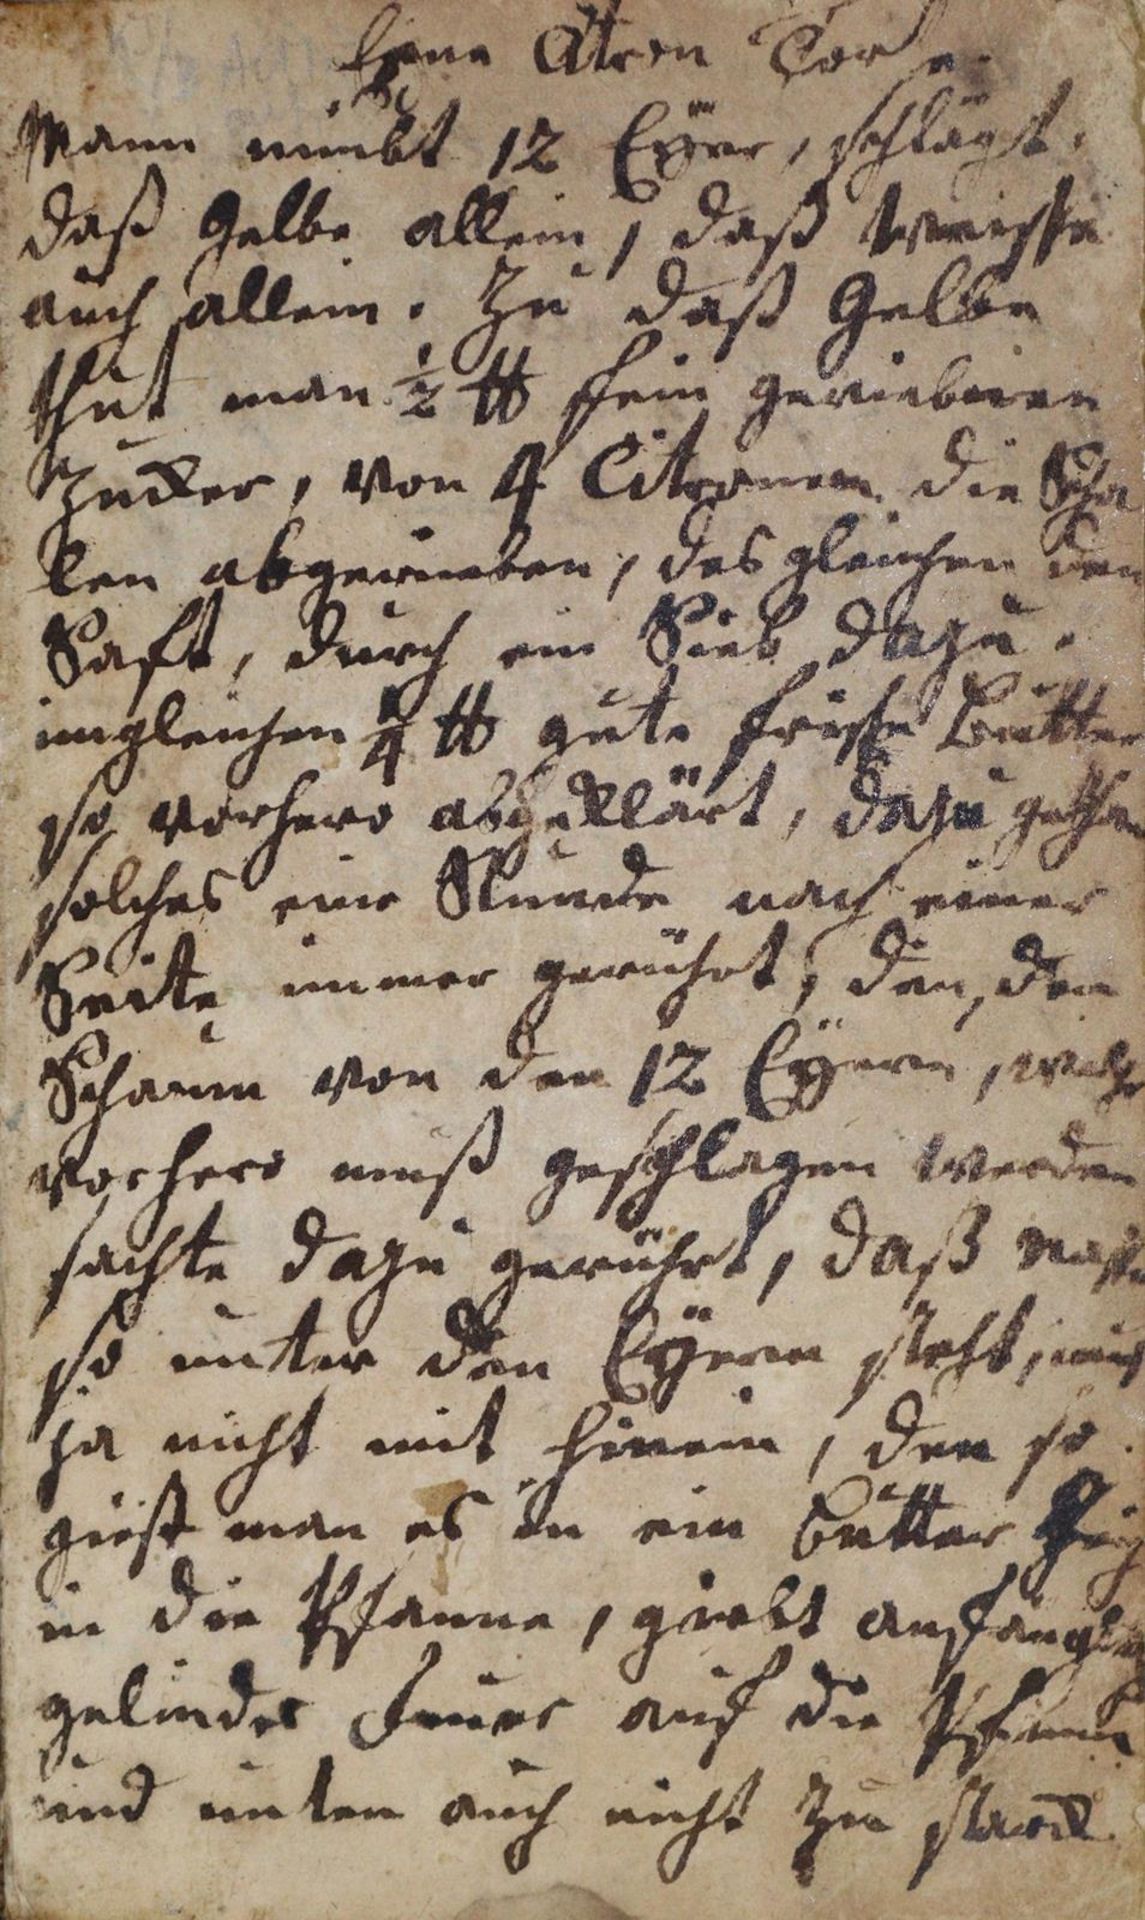 Eine Citron Torte.
Mann nimbt 12 Eÿer, schlägt
daß Gelbe allein, daß Weisse
auch allein. Zu daß Gelbe
thut man ½ ℔ fein geriebenen
Zucker, von 4 Citronen die Scha
len abgerieben, desgleichen den
Saft, durch ein Sieb dazu.
imgleichen ℔ gute frische Butter
so vorhero abgeklärt, dazu gethan
solches eine Stunde nach einer
Seite immer gerührt, den, den
Schaum von den 12 Eÿern, welche
vorhero muß geschlagen werden
sachte dazu gerührt, daß
so unter den Eÿern steht, muß
ja nicht mit hinein, den so
giest man es in ein Butter Teig
in die Pfanne, giebt anfänglich
gelindes Feuer auf die Pfanne
und unten auch nicht zu starck